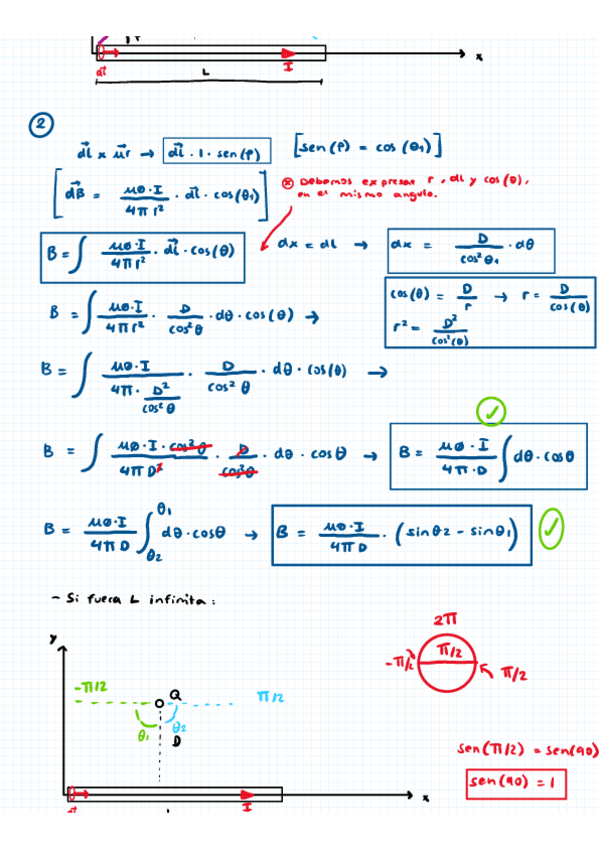 x
dl
L
I
2
dl x ur → dl · 1 · sen(β) [sen(β) = cos(θ1)]
[dB = μ0·I / 4π r² · dl · cos(θ1)]
⊗ Debemos expresar r, dl y cos(θ),
en el mismo angulo.
B = ∫ μ0·I / 4π r² · dl · cos(θ) dx = dl → dx = D / cos²θ1 · dθ
cos(θ) = D / r → r = D / cos(θ)
r² = D² / cos²(θ)
B = ∫ μ0·I / 4π r² · D / cos²θ · dθ · cos(θ) →
B = ∫ μ0·I / 4π · D² / cos²θ · D / cos²θ · dθ · cos(θ) →
B = ∫ μ0·I · cos²θ / 4π D² · D / cos²θ · dθ · cosθ → B = μ0·I / 4π·D ∫ dθ · cosθ
✓
B = μ0·I / 4π D ∫ θ1 θ2 dθ · cosθ → B = μ0·I / 4π D · (sinθ2 - sinθ1)
✓
- Si fuera L infinita:
y
2π
π/2
-π/2
π/2
-π/2
Q
π/2
θ1
θ2
D
sen(π/2) = sen(90)
sen(90) = 1
x
dl
I